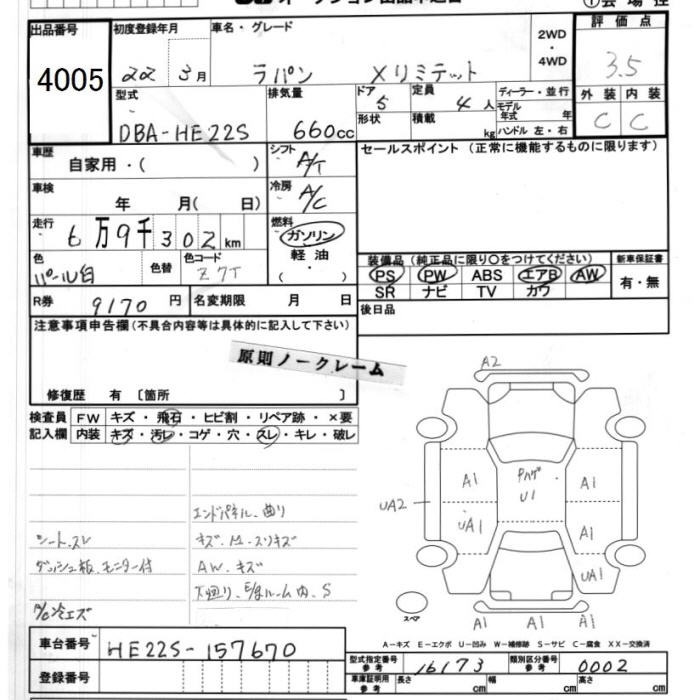 オークション出品申込書 ①会場控
出品番号 初度登録年月 車名・グレード 2WD・4WD 評価点
4005 22 3月 ラパン Xリミテット 3.5
型式 排気量 ドア 定員 ディーラー・並行 外装 内装
DBA-HE22S 660cc 5 4人 モデル年式 年 C C
形状 積載 kg ハンドル 左・右
車歴 シフト セールスポイント (正常に機能するものに限ります)
自家用・( ) A/T
車検 冷房
年 月( 日) A/C
走行 燃料
6万9千302km ガソリン
軽油
色 色替 色コード ・
パール白 Z7T ( )
装備品 (純正品に限り○をつけてください) 新車保証書
PS PW ABS エアB AW 有・無
SR ナビ TV カワ
R券 9170円 名変期限 月 日 後日品
注意事項申告欄(不具合内容等は具体的に記入して下さい)
原則ノークレーム
修復歴 有 〔箇所 〕
検査員 FW キズ・飛石・ヒビ割・リペア跡・×要
記入欄 内装 キズ・汚レ・コゲ・穴・スレ・キレ・破レ
エンドパネル、曲り
シート、スレ キズ、凹、スリキズ
ダッシュ板、モニター付 AW、キズ
下廻り、E/gルーム内、S
A/C冷エズ
A2
A1 A1
UA2 UA1 U1 A1
UA1
A1 A1 A1
スペア
A-キズ E-エクボ U-凹み W-補修跡 S-サビ C-腐食 XX-交換済
車台番号 HE22S-157670
型式指定番号 参考 16173 類別区分番号 参考 0002
登録番号
車庫証明用 参考 長さ cm 幅 cm 高さ cm